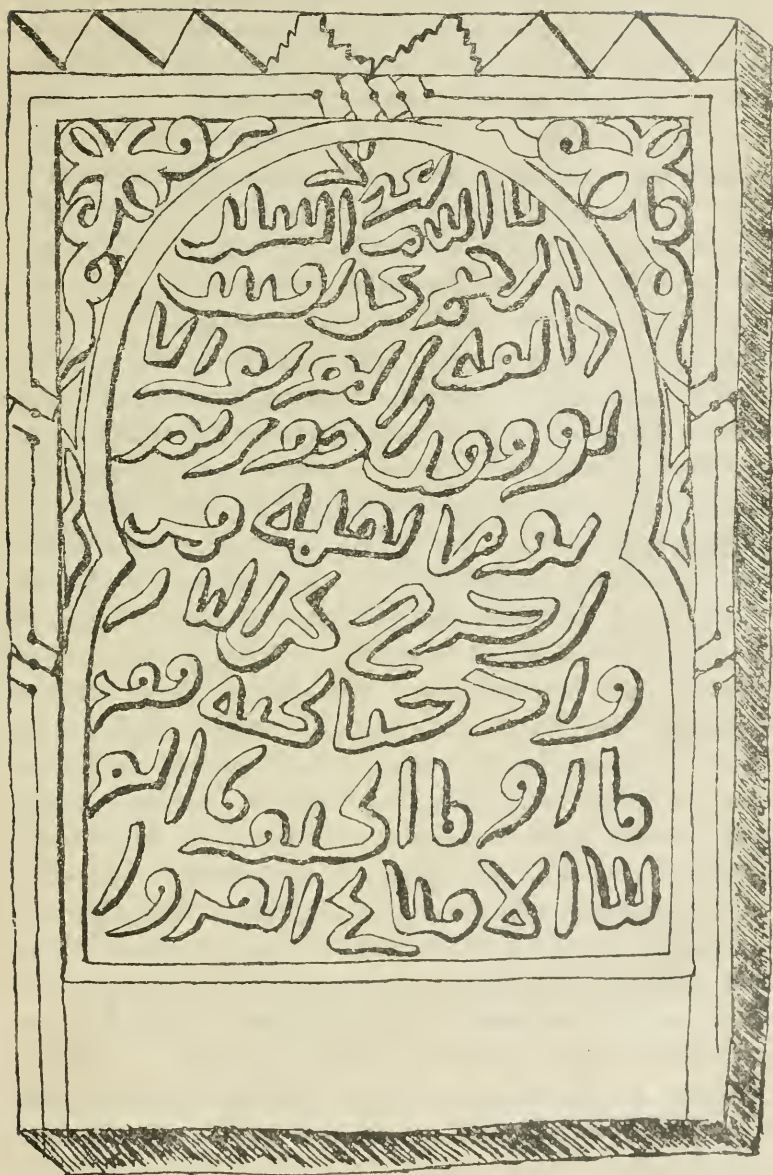 الرحيم كل نفس
ذائقة الموت وانما
توفون اجوركم
يوم القيمة فمن
زحزح عن النار
وادخل الجنة فقد
فاز وما الحيوة الد
نيا الا متاع الغرور